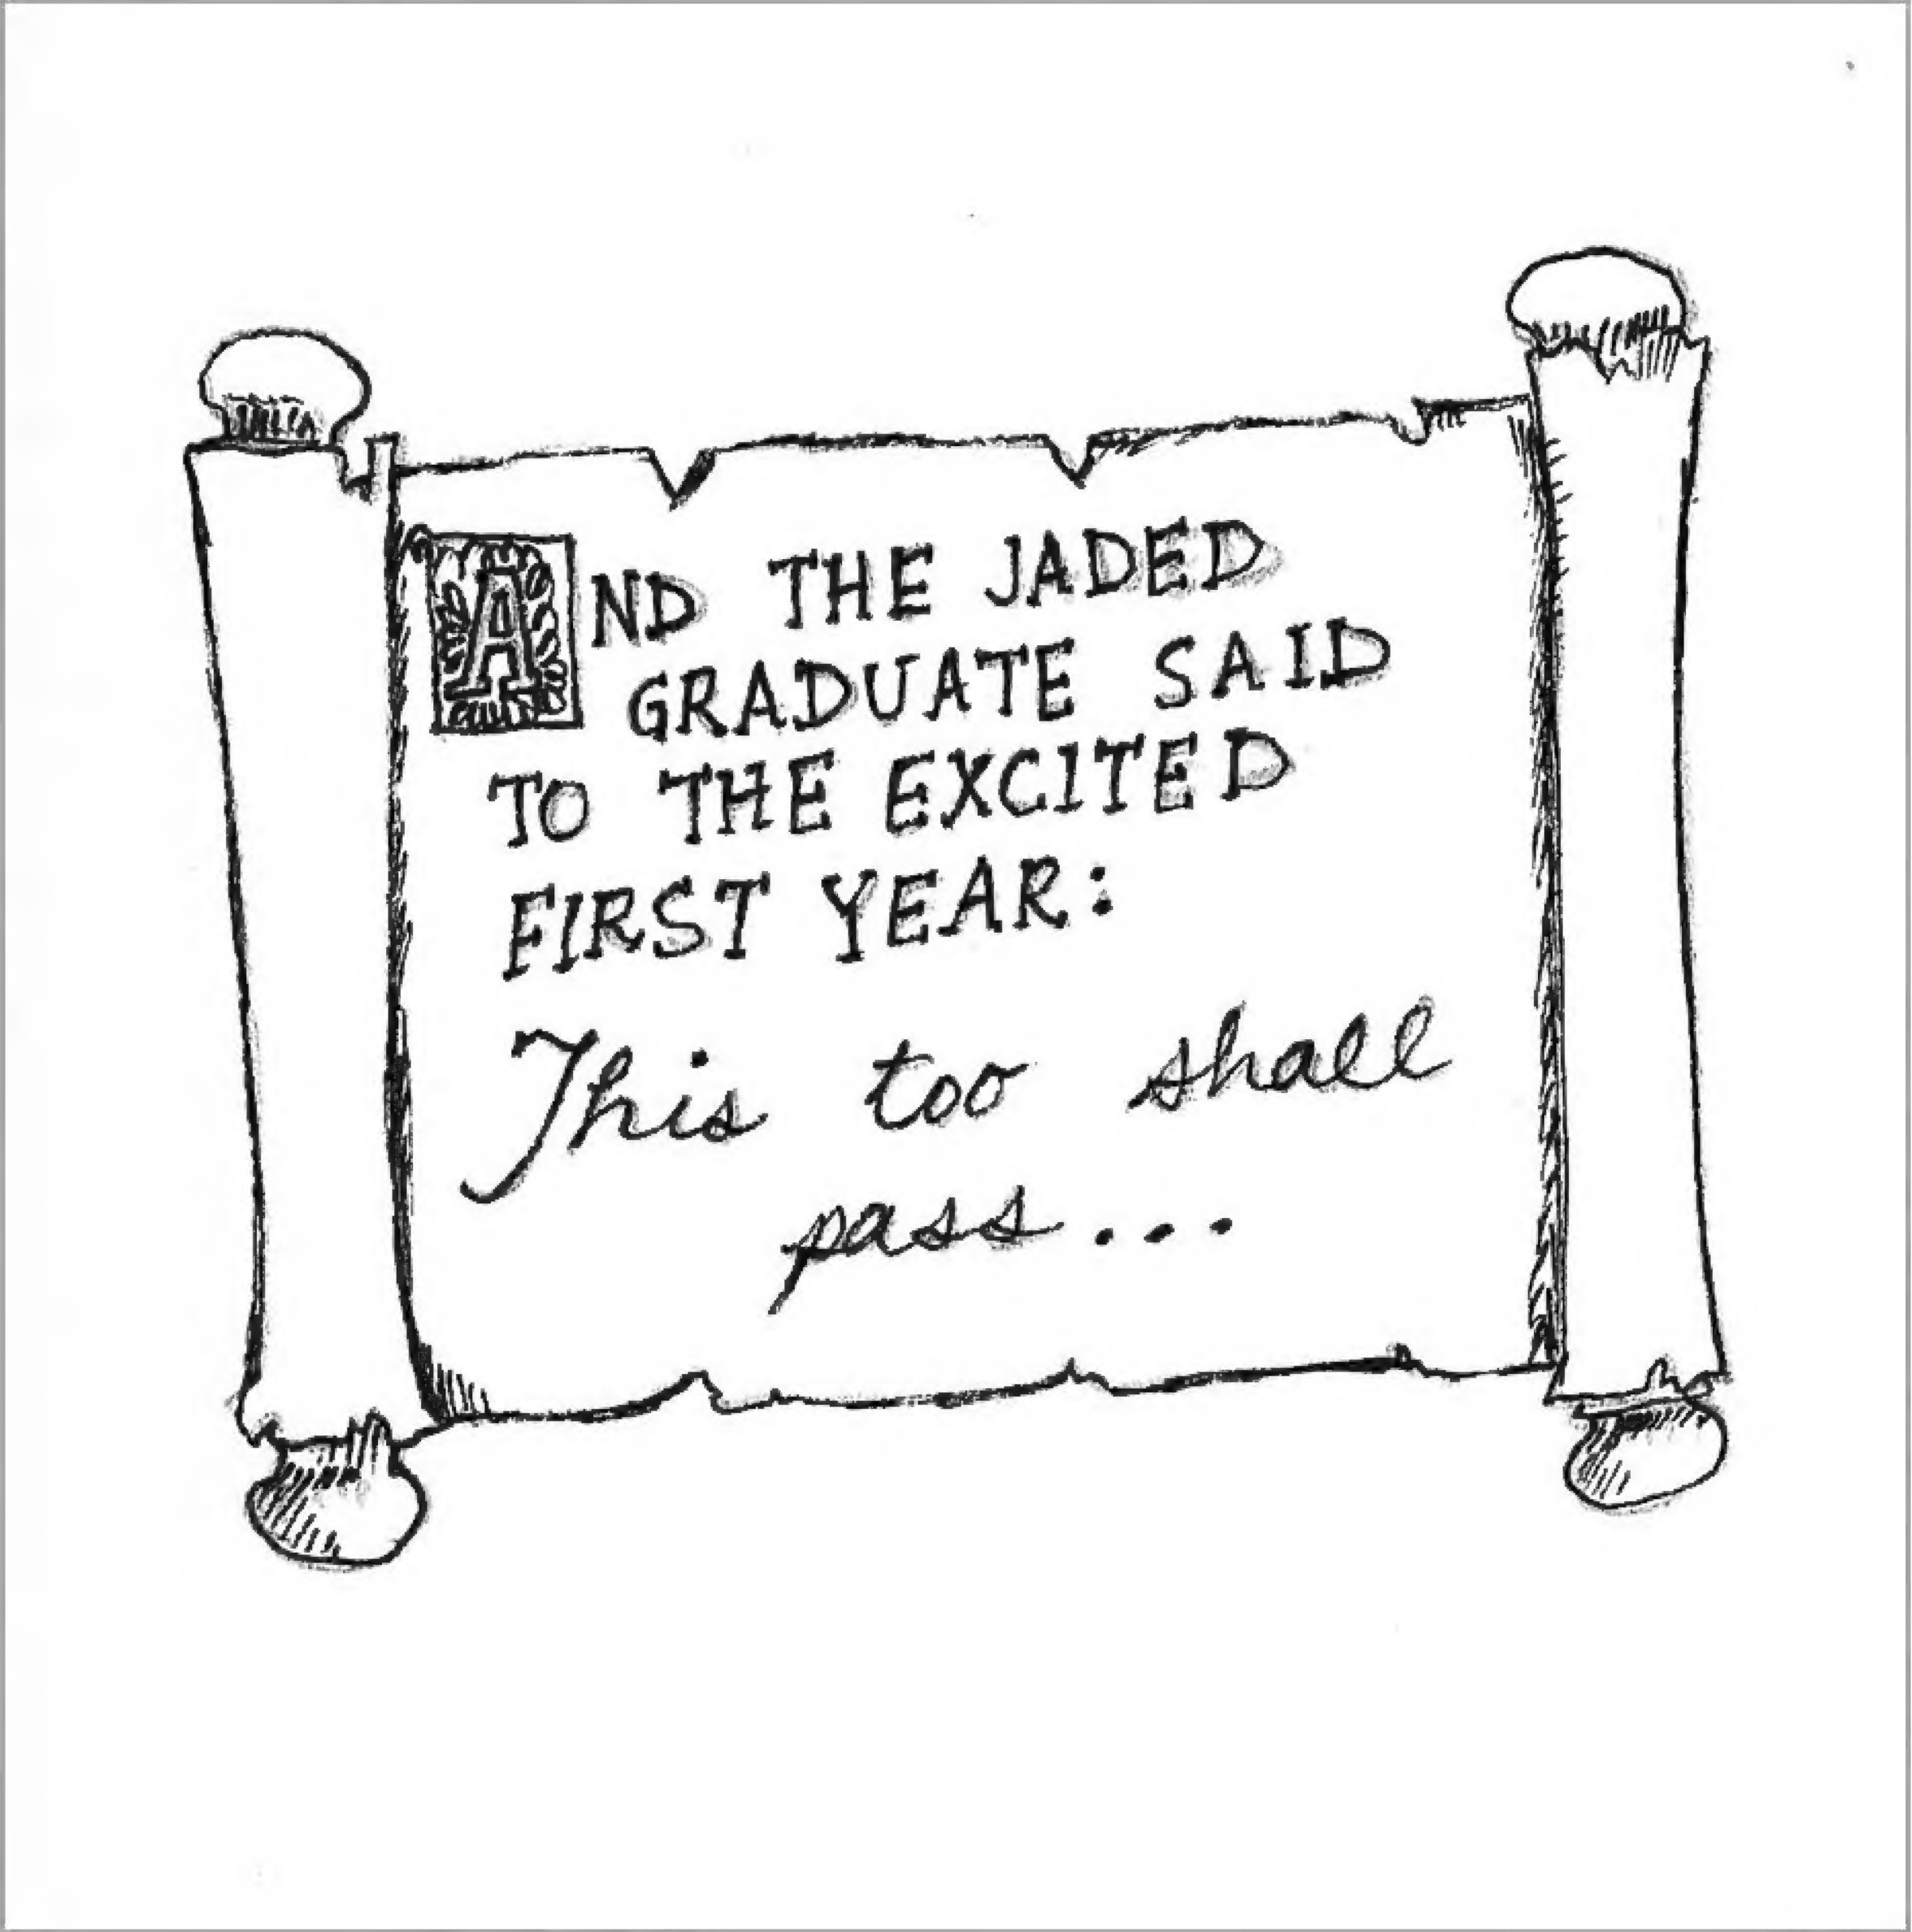 AND THE JADED
GRADUATE SAID
TO THE EXCITED
FIRST YEAR:
This too shall
pass...